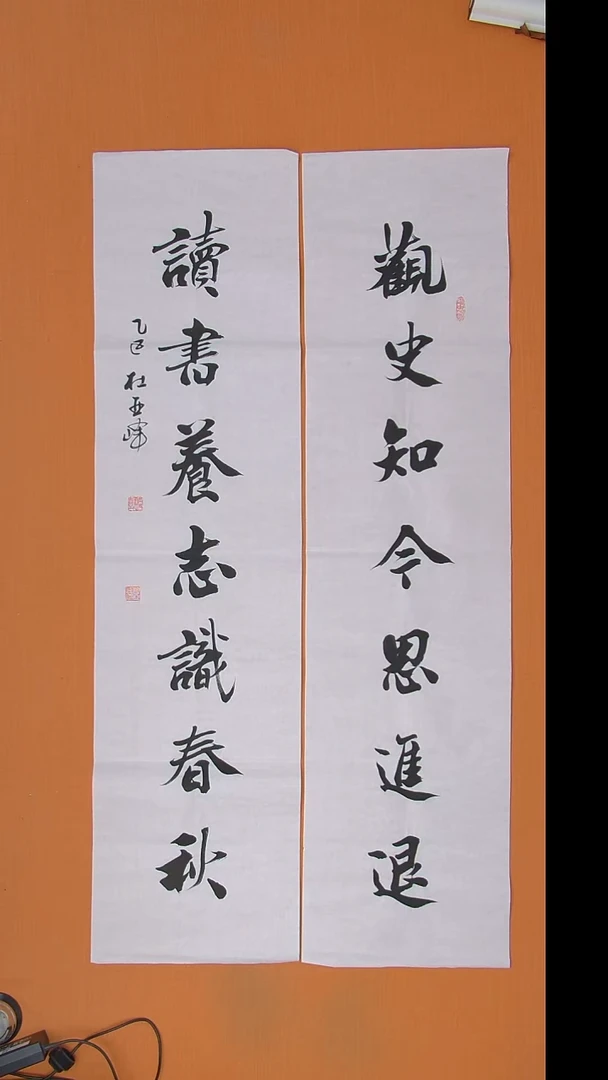 觀史知今思進退
讀書養志識春秋
乙巳杜亚峰